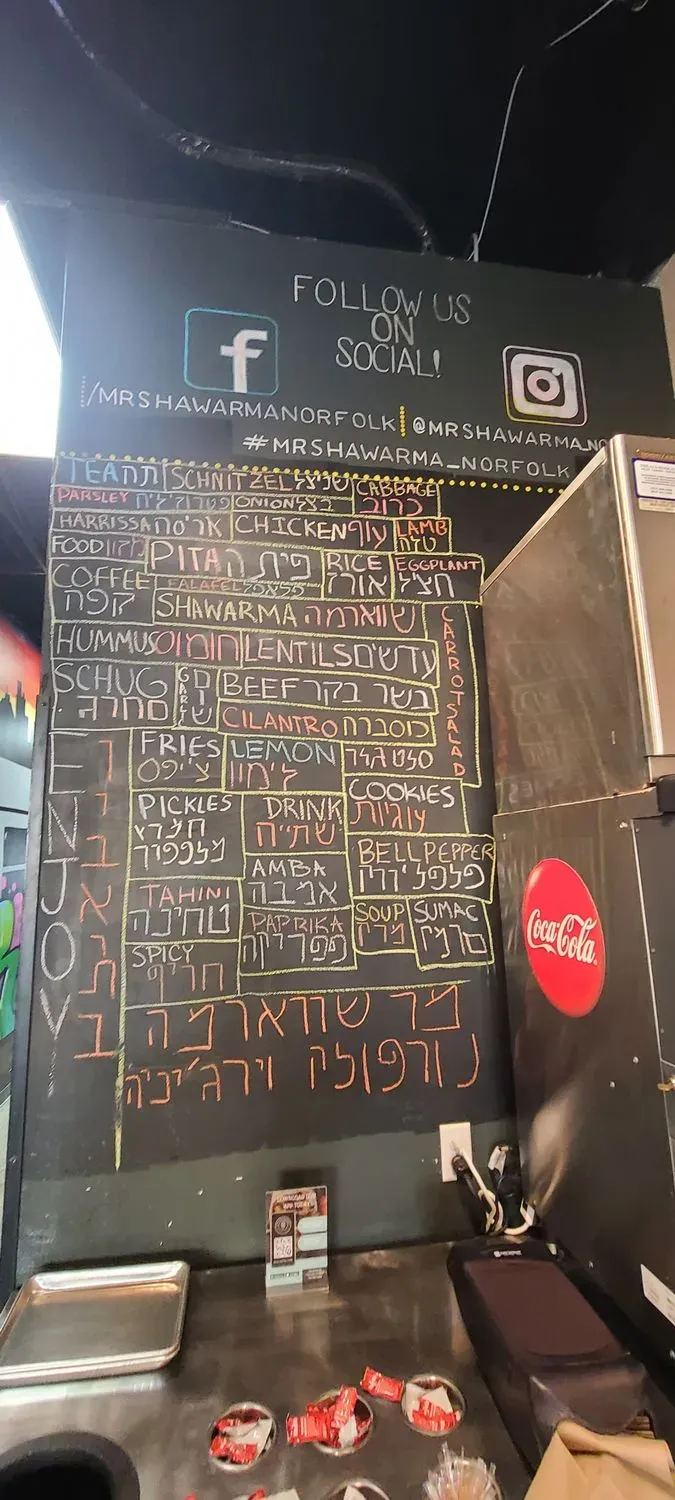 FOLLOW US
ON
SOCIAL!
f
/MRSHAWARMANORFOLK
@MRSHAWARMA_NO
#MRSHAWARMA_NORFOLK
TEA תה
SCHNITZEL שניצל
CABBAGE
כרוב
PARSLEY
ONION בצל
HARRISSA אריסה
CHICKEN עוף
LAMB
טלה
FOOD מזון
PITA פיתה
RICE
אורז
EGGPLANT
חציל
COFFEE
קפה
FALAFEL פלאפל
SHAWARMA שווארמה
CARROT SALAD
HUMMUS חומוס
LENTILS עדשים
SCHUG
סחרג
GARLIC
שום
BEEF בשר בקר
CILANTRO כוסברה
FRIES
צ'יפס
LEMON
לימון
סלט גזר
COOKIES
עוגיות
PICKLES
DRINK
שתיה
BELL PEPPER
AMBA
אמבה
TAHINI
טחינה
PAPRIKA
פפריקה
SOUP
מרק
SUMAC
סומק
SPICY
חריף
ENJOY!
בתיאבון
מר שווארמה
נורפולק וירג'יניה
Coca-Cola